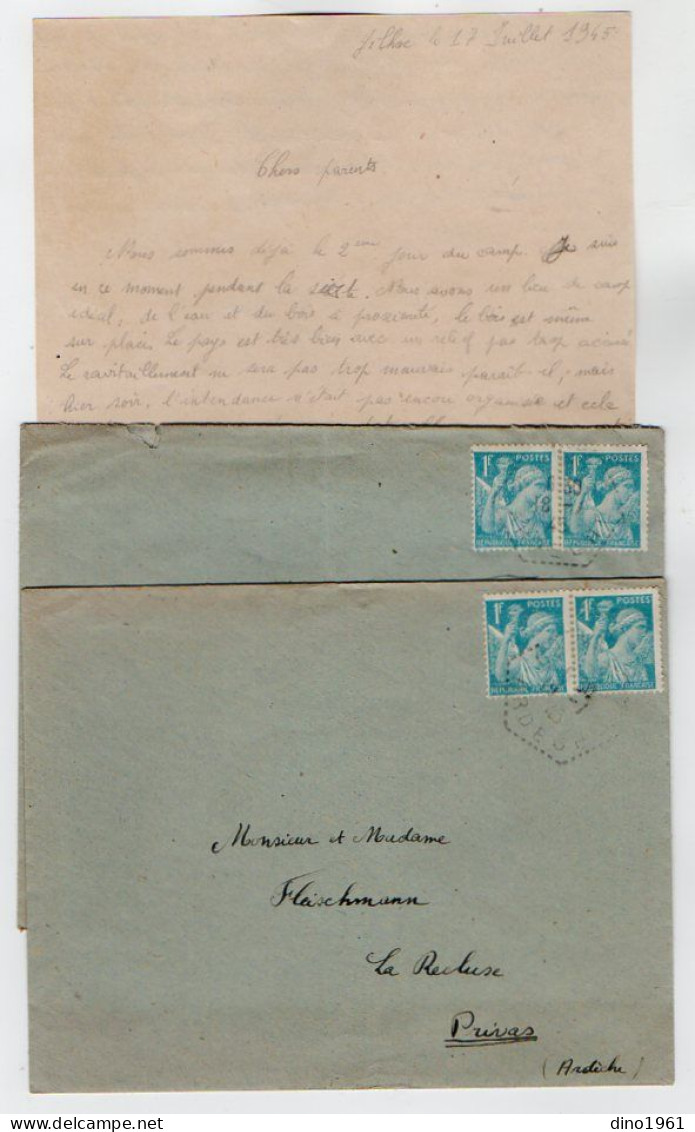 le 17 Juillet 1945
Chers parents
Nous sommes déjà le 2ème jour du camp. Je suis
en ce moment pendant la sieste. Nous avons un lieu de camp
idéal, de l'eau et du bois à proximité, le bois est même
sur place. Le pays est très bien avec un relief pas trop
Le ravitaillement ne sera pas trop mauvais paraît-il, mais
hier soir, l'intendance n'était pas encore organisée et cela
1F POSTES
REPUBLIQUE FRANÇAISE
1F POSTES
REPUBLIQUE FRANÇAISE
1F POSTES
REPUBLIQUE FRANÇAISE
1F POSTES
REPUBLIQUE FRANÇAISE
RDECHE
Monsieur et Madame
Fleischmann
La Recluse
Privas
(Ardèche)
dino1961